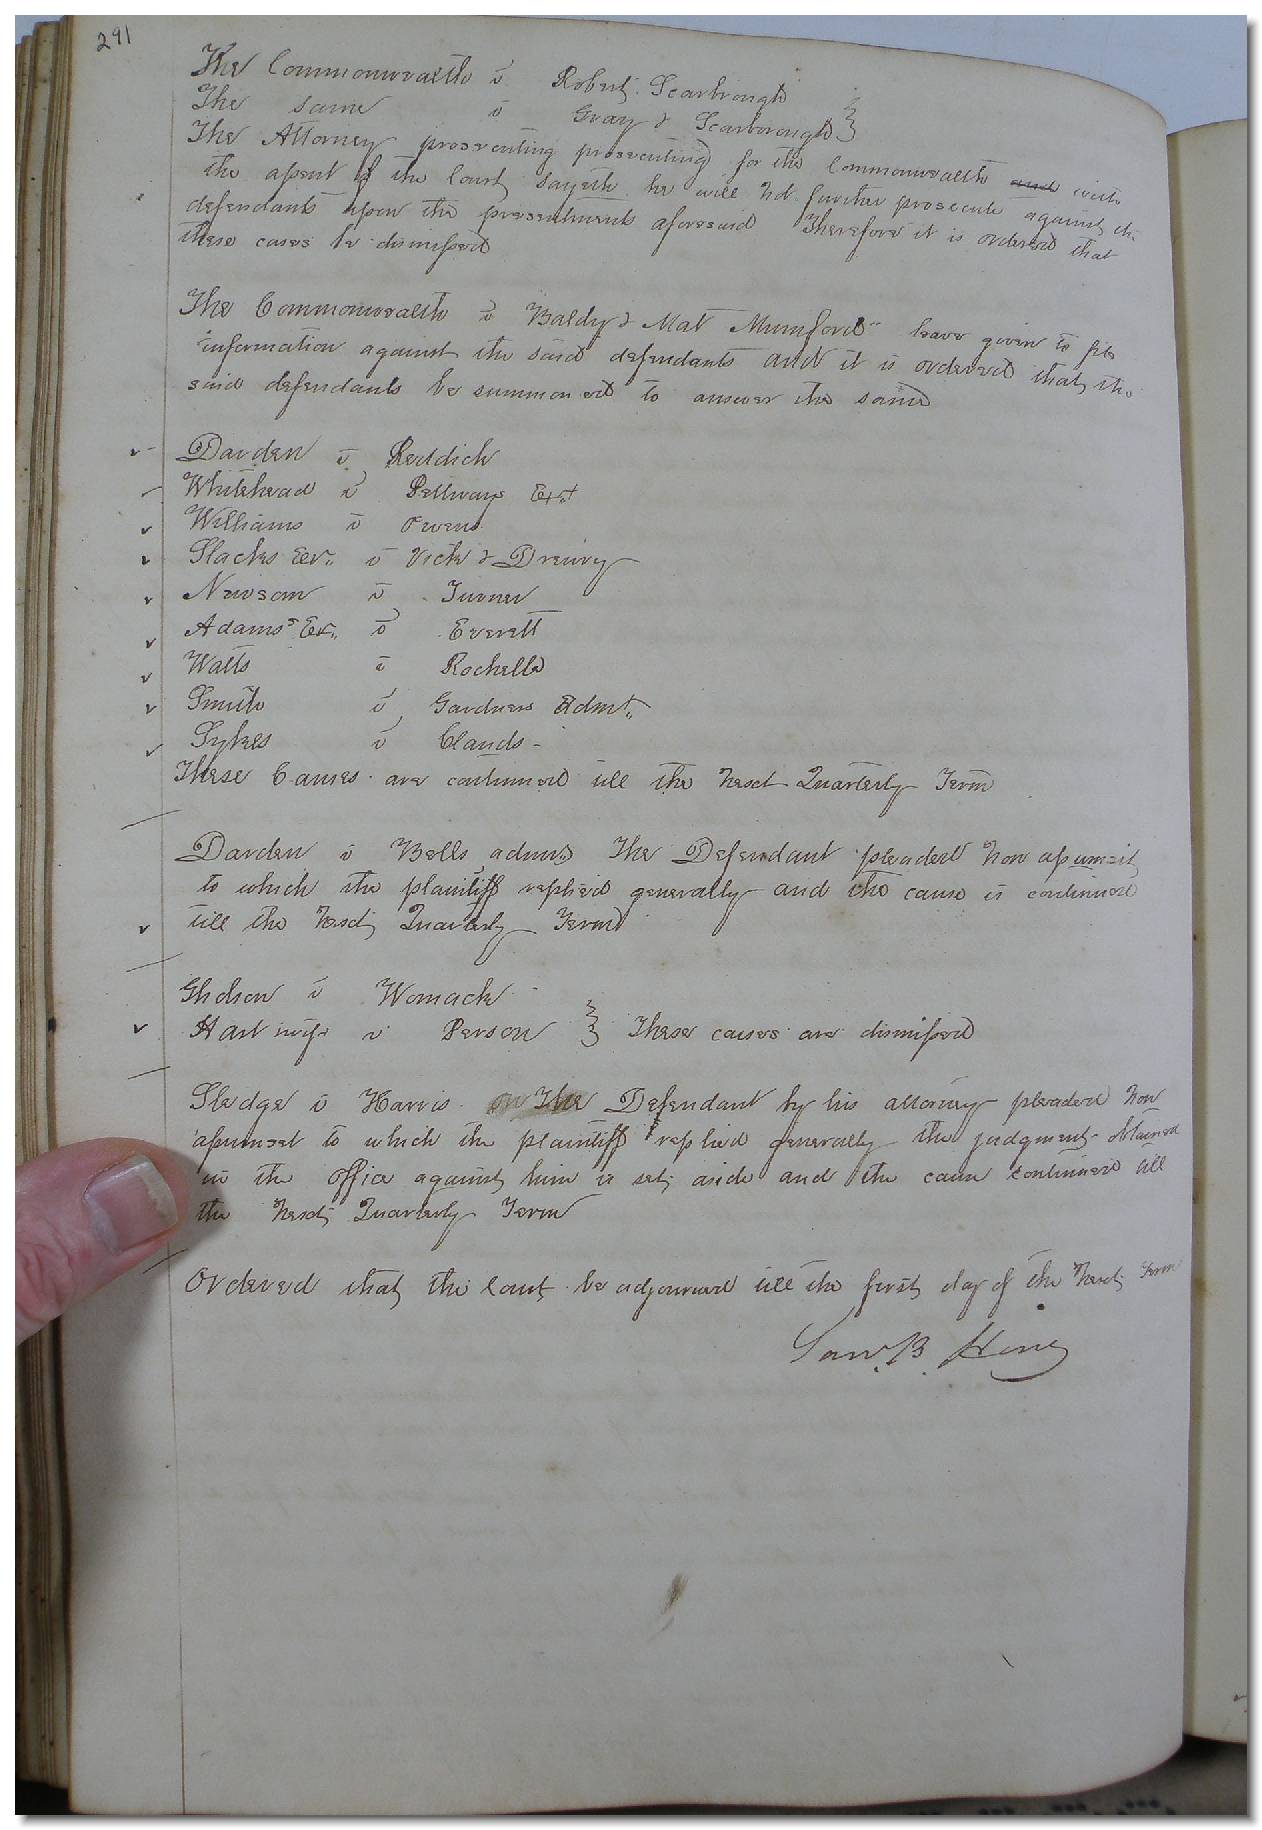 291
The Commonwealth v Robert Scarbrough
The same v Gray & Scarborough
The Attorney prosecuting prosecuting for the Commonwealth and with
the assent of the Court sayeth he will not further prosecute against the
defendants upon the presentments aforesaid Therefore it is ordered that
these cases be dismissed
The Commonwealth v Baldy & Mat Mumford leave given to file
information against the said defendants and it is ordered that the
said defendants be summoned to answer the same
Darden v Reddick
Whitehead v Pettways Ext
Williams v Owens
Slacks Exr. v Vick & Drewry
Newsom v Turner
Adams' Ex. v Everett
Watts v Rochelle
Smith v Gardners Admt.
Sykes v Clauds -
These Causes are continued till the next Quarterly Term
Darden v Bells admr The Defendant pleaded non assumsit
to which the plaintiff replied generally and the cause is continued
till the next Quarterly Term
Gholson v Womack
Hart wife v Person These causes are dismissed
Sledge v Harris on The Defendant by his attorney pleaded non
assumset to which the plaintiff replied generally the judgment obtained
in the office against him is set aside and the cause continued till
the next Quarterly Term
Ordered that the Court be adjourned till the first day of the next Term
Sam. B. Hines